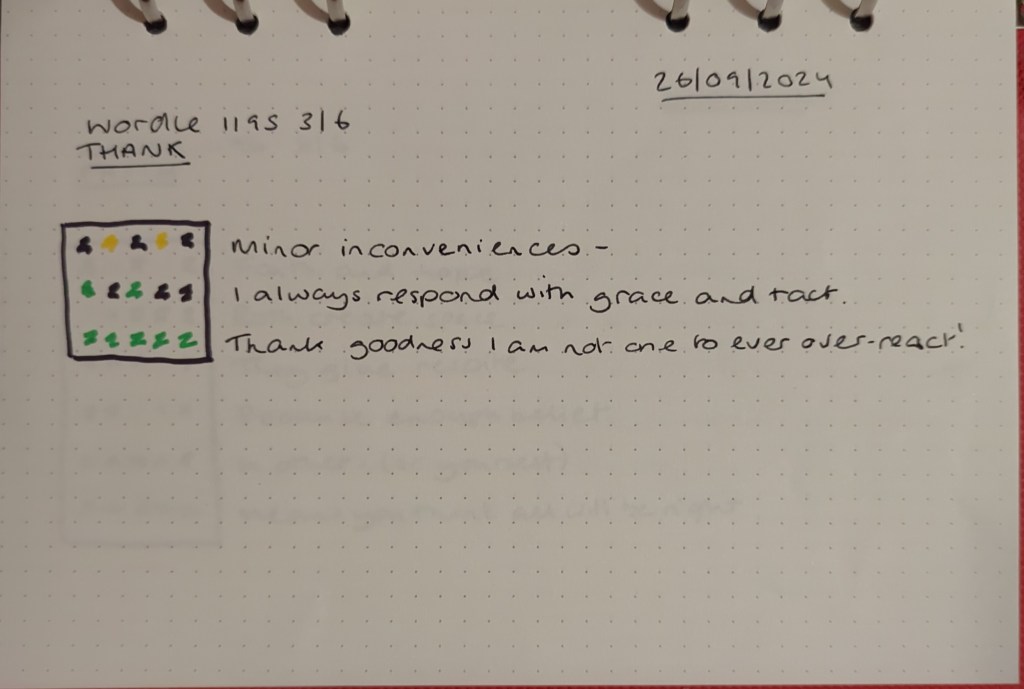 26/09/2024
Wordle 1195 3/6
THANK
Minor inconveniences -
I always respond with grace and tact.
Thank goodness I am not one to ever over-react!